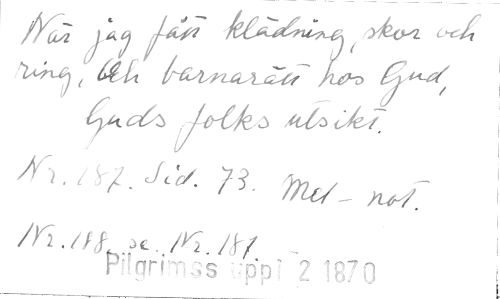 När jag fått klädning, skor och
ring, och barnarätt hos Gud,
Guds folks utsikt.
Nr. 187. Sid. 73. Mel - not.
Nr. 188 se Nr. 187
Pilgrimss uppl 2 1870